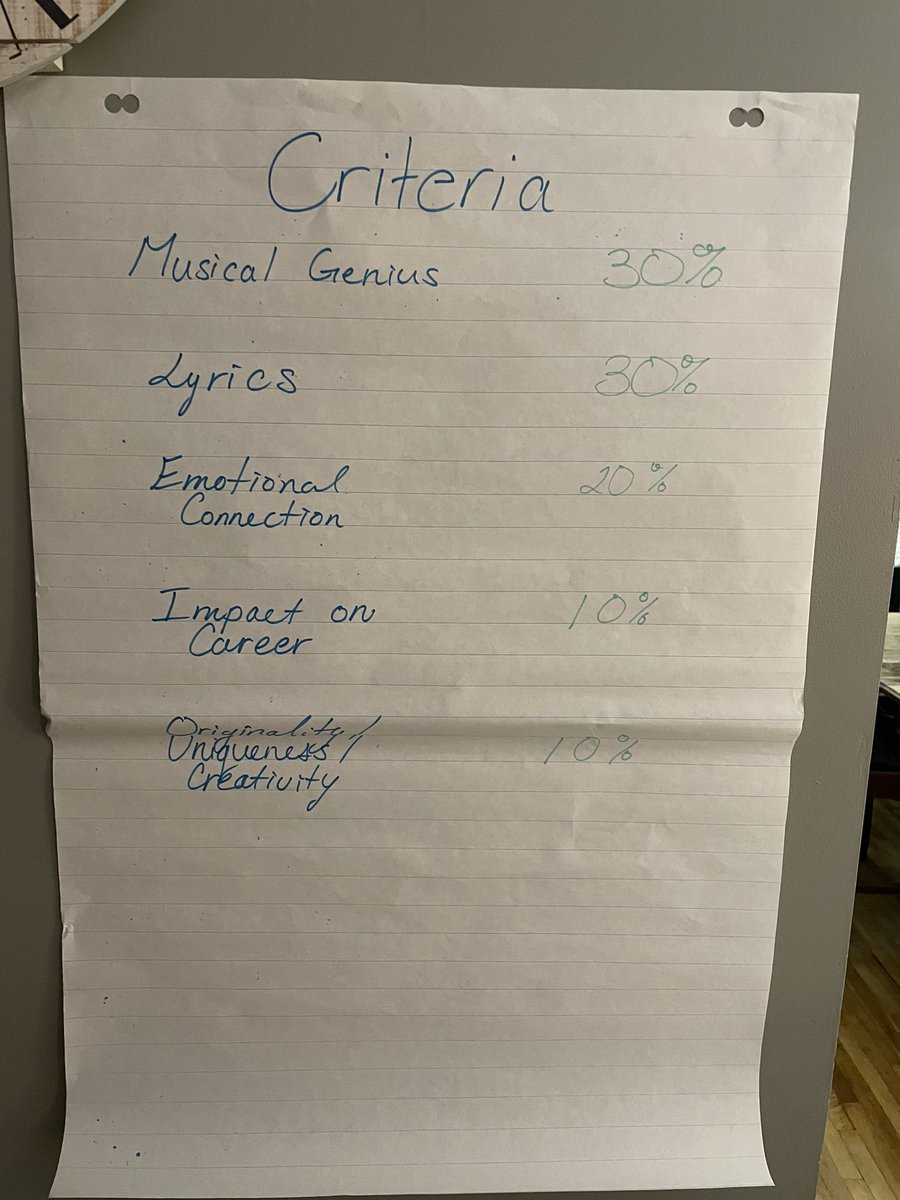 Criteria
Musical Genius 30%
Lyrics 30%
Emotional 20%
Connection
Impact on 10%
Career
Originality/
Uniqueness/ 10%
Creativity